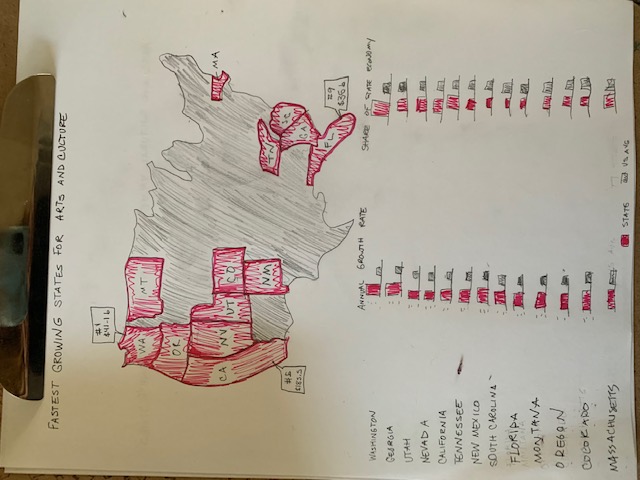 FASTEST GROWING STATES FOR ARTS AND CULTURE
#1
WA
MT
OR
CA
NV
UT
CO
NM
MA
TN
SC
GA
FL
#9
ANNUAL GROWTH RATE
SHARE OF STATE ECONOMY
WASHINGTON
GEORGIA
UTAH
NEVADA
CALIFORNIA
TENNESSEE
NEW MEXICO
SOUTH CAROLINA
FLORIDA
MONTANA
OREGON
COLORADO
MASSACHUSETTS
STATE
US AVG